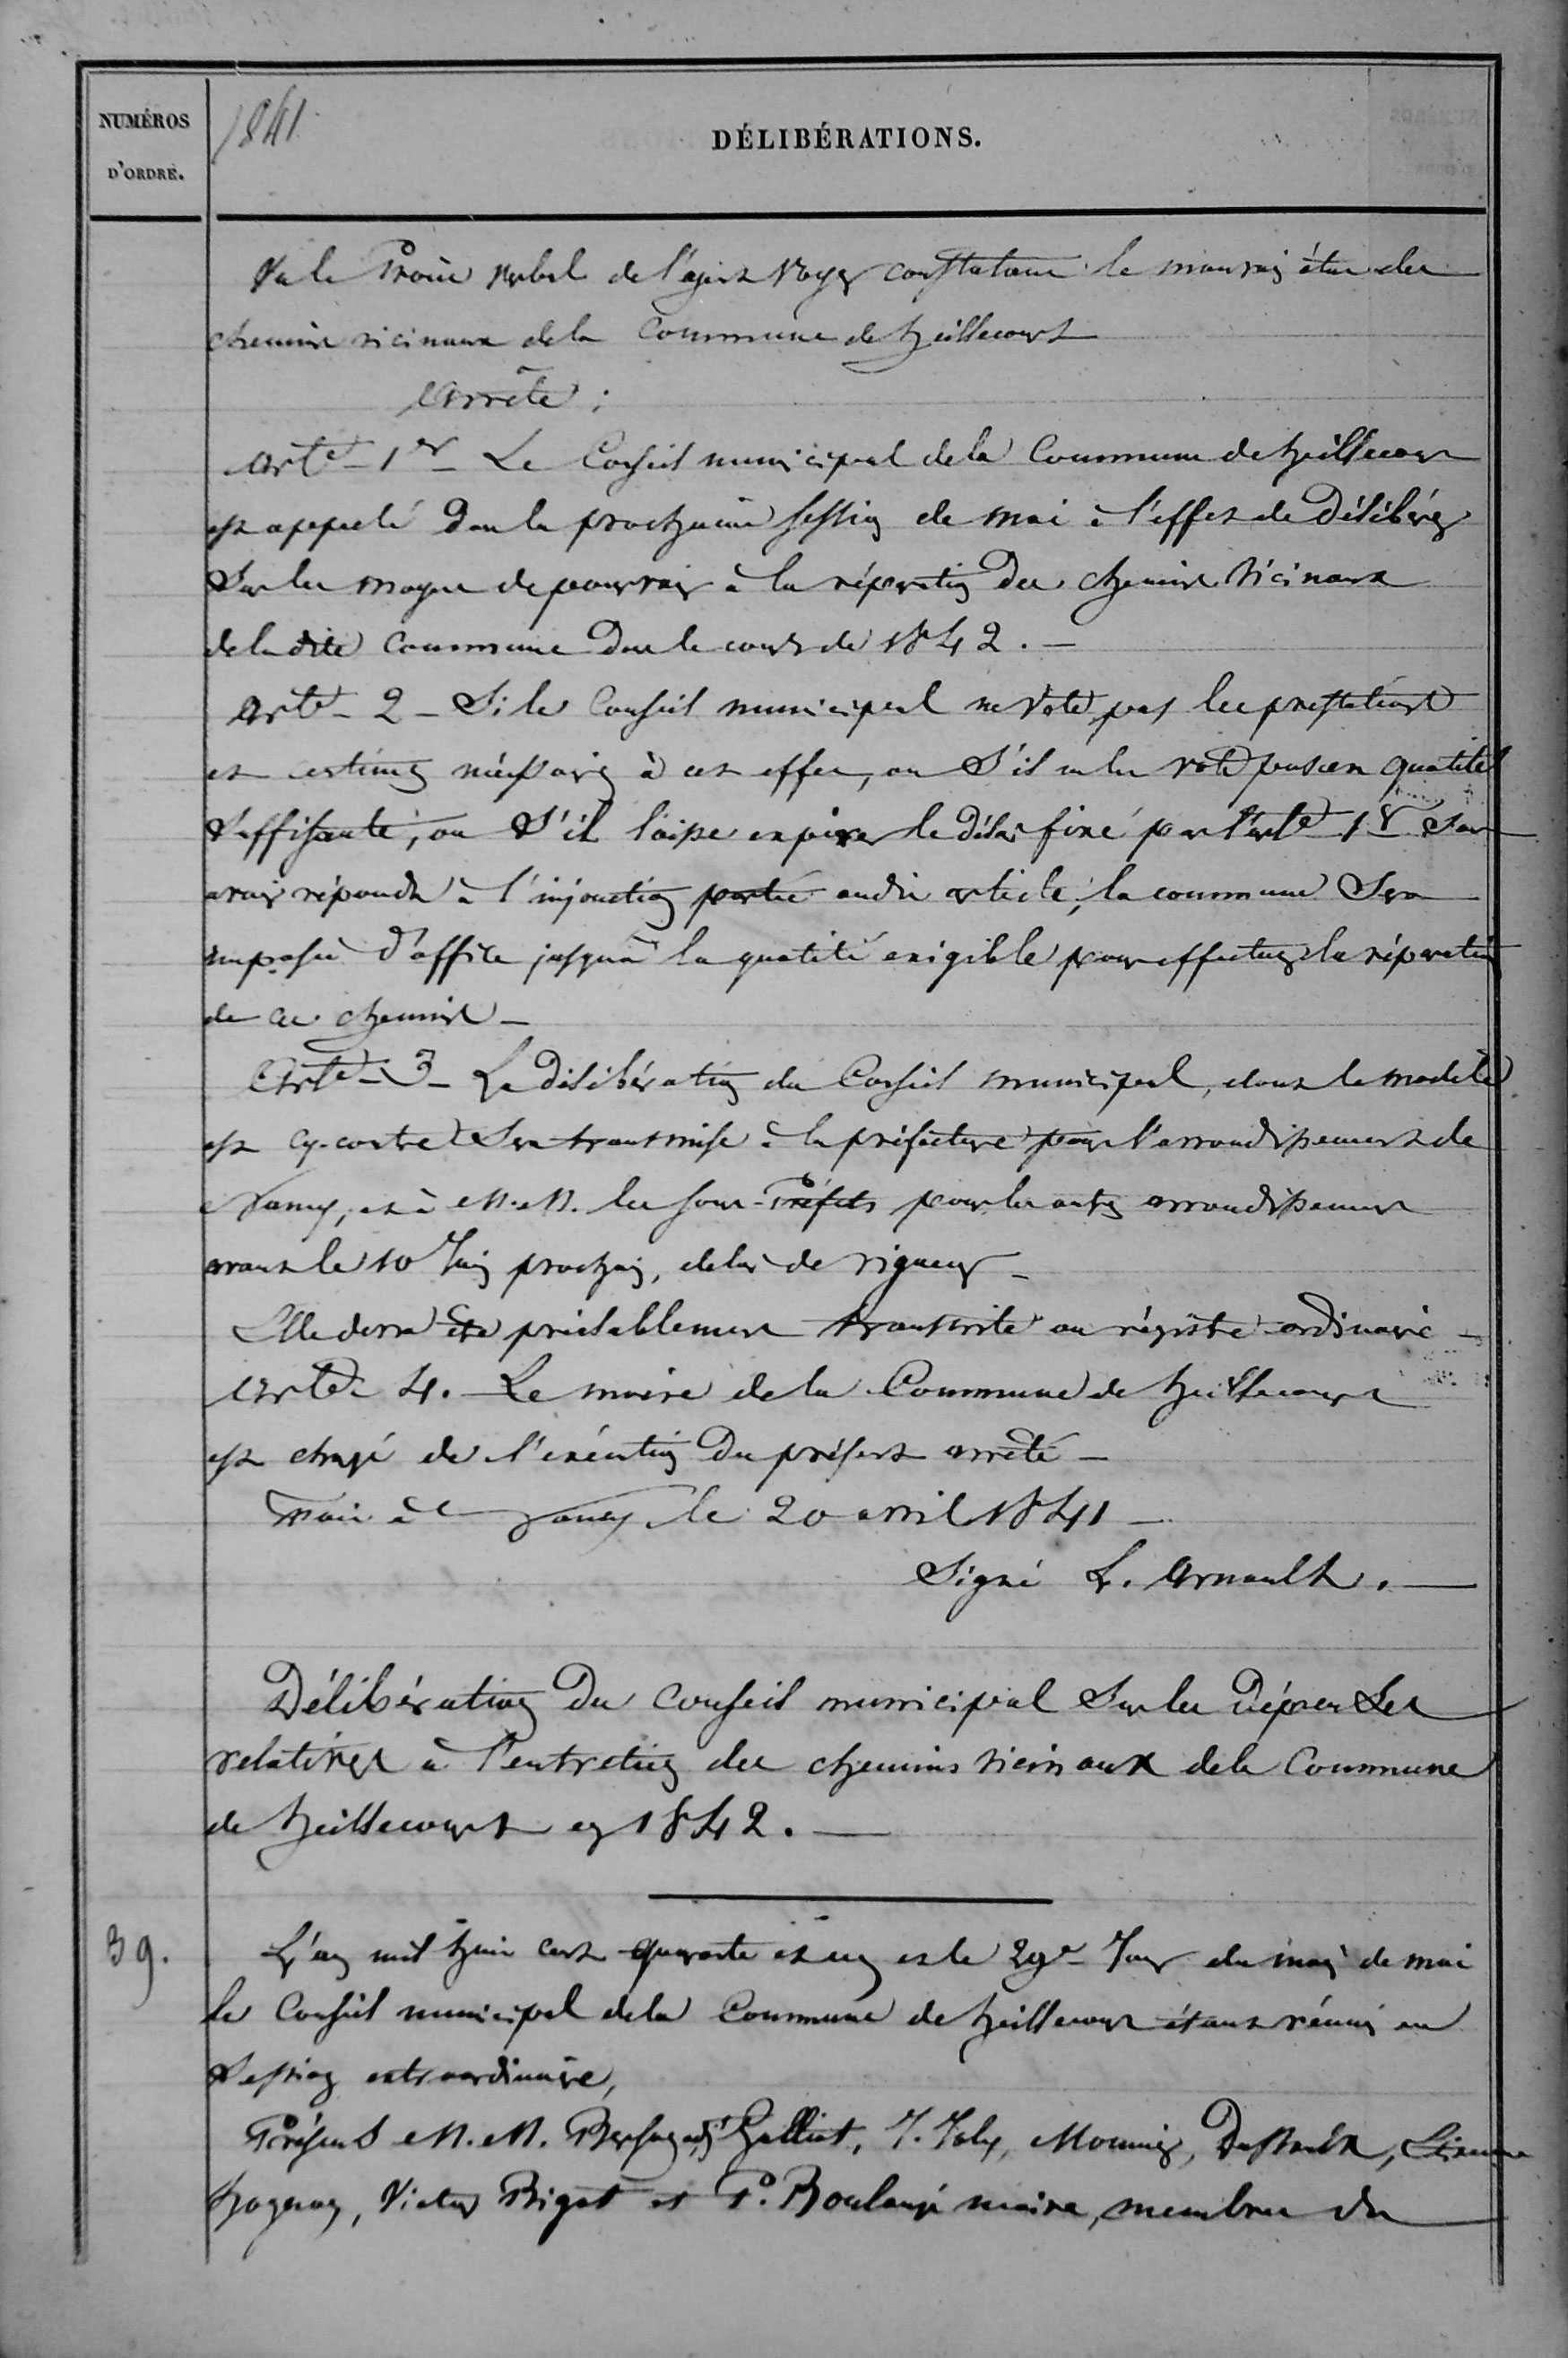 NUMÉROS
D'ORDRE.
1841
DÉLIBÉRATIONS.
Vu le Procès verbal de l'agent Voyer constatant le mauvais état des
chemins vicinaux de la Commune de heillecourt
Arrête :
Arte 1er Le Conseil municipal de la Commune de heillecourt
est appelé dans la prochaine session de mai à l'effet de Délibérer
Sur les moyens de pourvoir à la réparation des chemins vicinaux
de la dite Commune dans le cours de 1842. —
Arte - 2 - Si le Conseil municipal ne vote pas les prestations
et centimes nécessaires à cet effet, ou S'il ne les vote pas en quotité
Suffisante, ou S'il laisse expirer le délai fixé par l'arte 1er Sans
avoir répondu à l'injonction portée audit article, la commune Sera
imposée d'office jusqu'à la quotité exigible pour effectuer la réparation
de ces chemins —
Arte - 3 - La délibération du Conseil municipal, dont le modèle
est cy-contre Sera transmise à la préfecture pour l'arrondissement de
Nancy, et à M.M. les sous-Préfets pour les autres arrondissements
avant le 10 Juin prochain, délai de rigueur —
Elle devra être préalablement transcrite au régistre ordinaire —
Arte - 4. Le maire de la Commune de heillecourt
est chargé de l'exécution du présent arrêté —
Fait à Nancy le 20 avril 1841 —
Signé L. Arnault. —
Délibération du Conseil municipal Sur les Dépenses
relatives à l'entretien des chemins vicinaux de la Commune
de heillecourt en 1842. —
39.
L'an mil huit cent quarante et un et le 29e Jour du mois de mai
le Conseil municipal de la Commune de heillecourt étant réuni en
Session extraordinaire,
Présents M.M. adjt Galliot, J. Joly, Mounier, Etienne
Victor Bigot et P. Boulangé maire, membres du